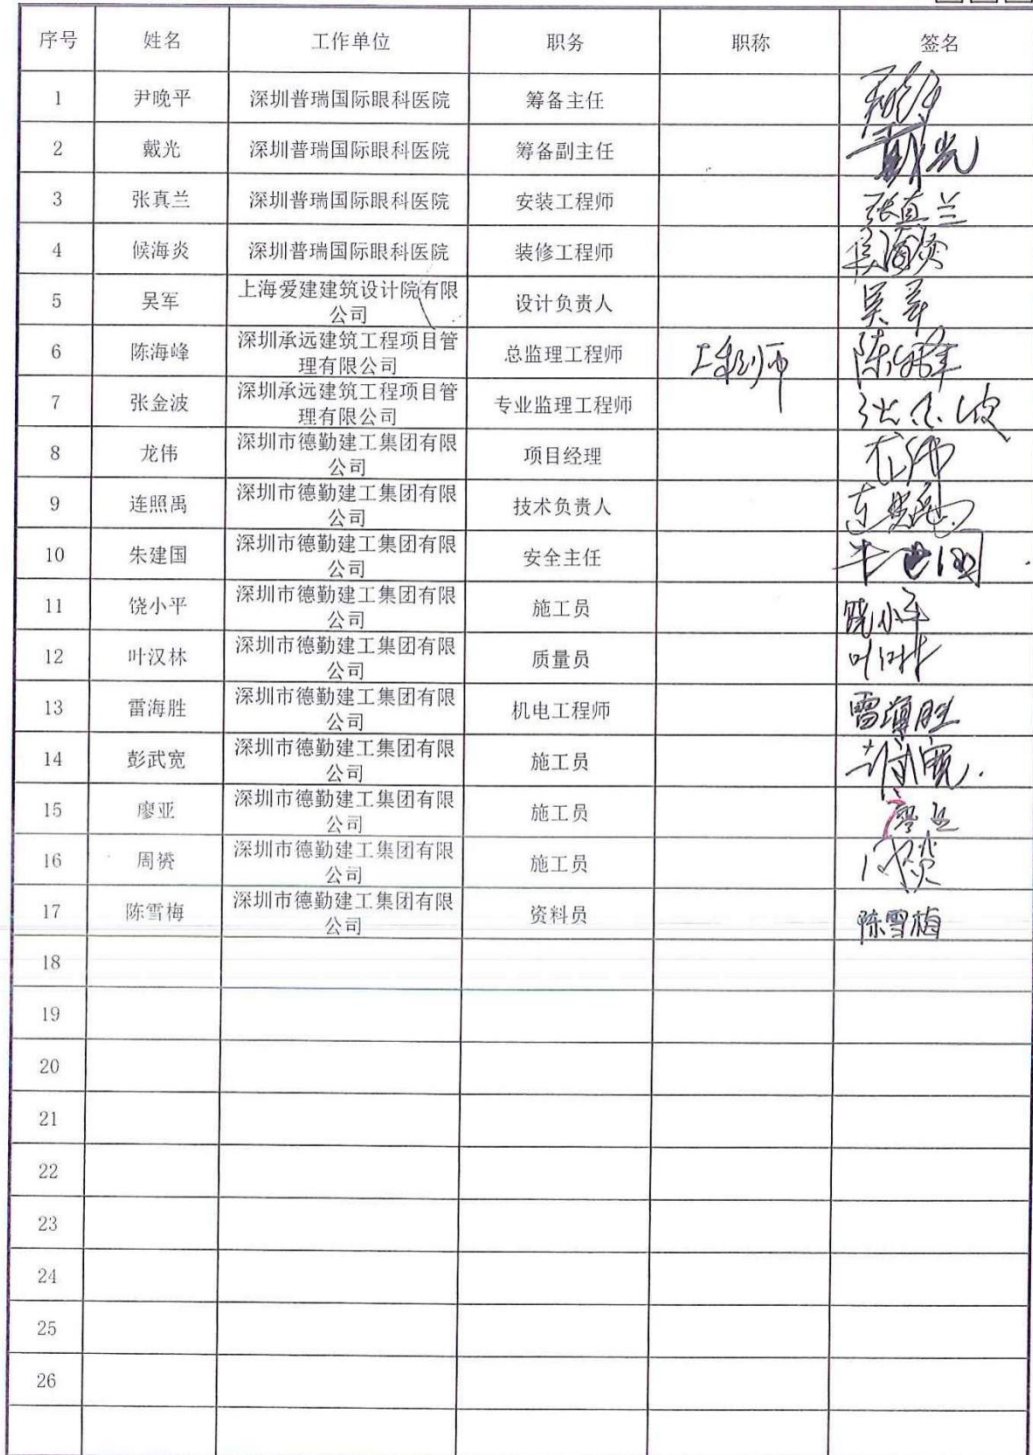 序号 姓名 工作单位 职务 职称 签名
1 尹晚平 深圳普瑞国际眼科医院 筹备主任
2 戴光 深圳普瑞国际眼科医院 筹备副主任 戴光
3 张真兰 深圳普瑞国际眼科医院 安装工程师 张真兰
4 候海炎 深圳普瑞国际眼科医院 装修工程师
5 吴军 上海爱建建筑设计院有限
公司 设计负责人 吴军
6 陈海峰 深圳承远建筑工程项目管
理有限公司 总监理工程师 工程师 陈海峰
7 张金波 深圳承远建筑工程项目管
理有限公司 专业监理工程师 张金波
8 龙伟 深圳市德勤建工集团有限
公司 项目经理 龙伟
9 连照禹 深圳市德勤建工集团有限
公司 技术负责人
10 朱建国 深圳市德勤建工集团有限
公司 安全主任
11 饶小平 深圳市德勤建工集团有限
公司 施工员 饶小平
12 叶汉林 深圳市德勤建工集团有限
公司 质量员 叶汉林
13 雷海胜 深圳市德勤建工集团有限
公司 机电工程师 雷海胜
14 彭武宽 深圳市德勤建工集团有限
公司 施工员 彭武宽
15 廖亚 深圳市德勤建工集团有限
公司 施工员 廖亚
16 周赟 深圳市德勤建工集团有限
公司 施工员
17 陈雪梅 深圳市德勤建工集团有限
公司 资料员 陈雪梅
18
19
20
21
22
23
24
25
26